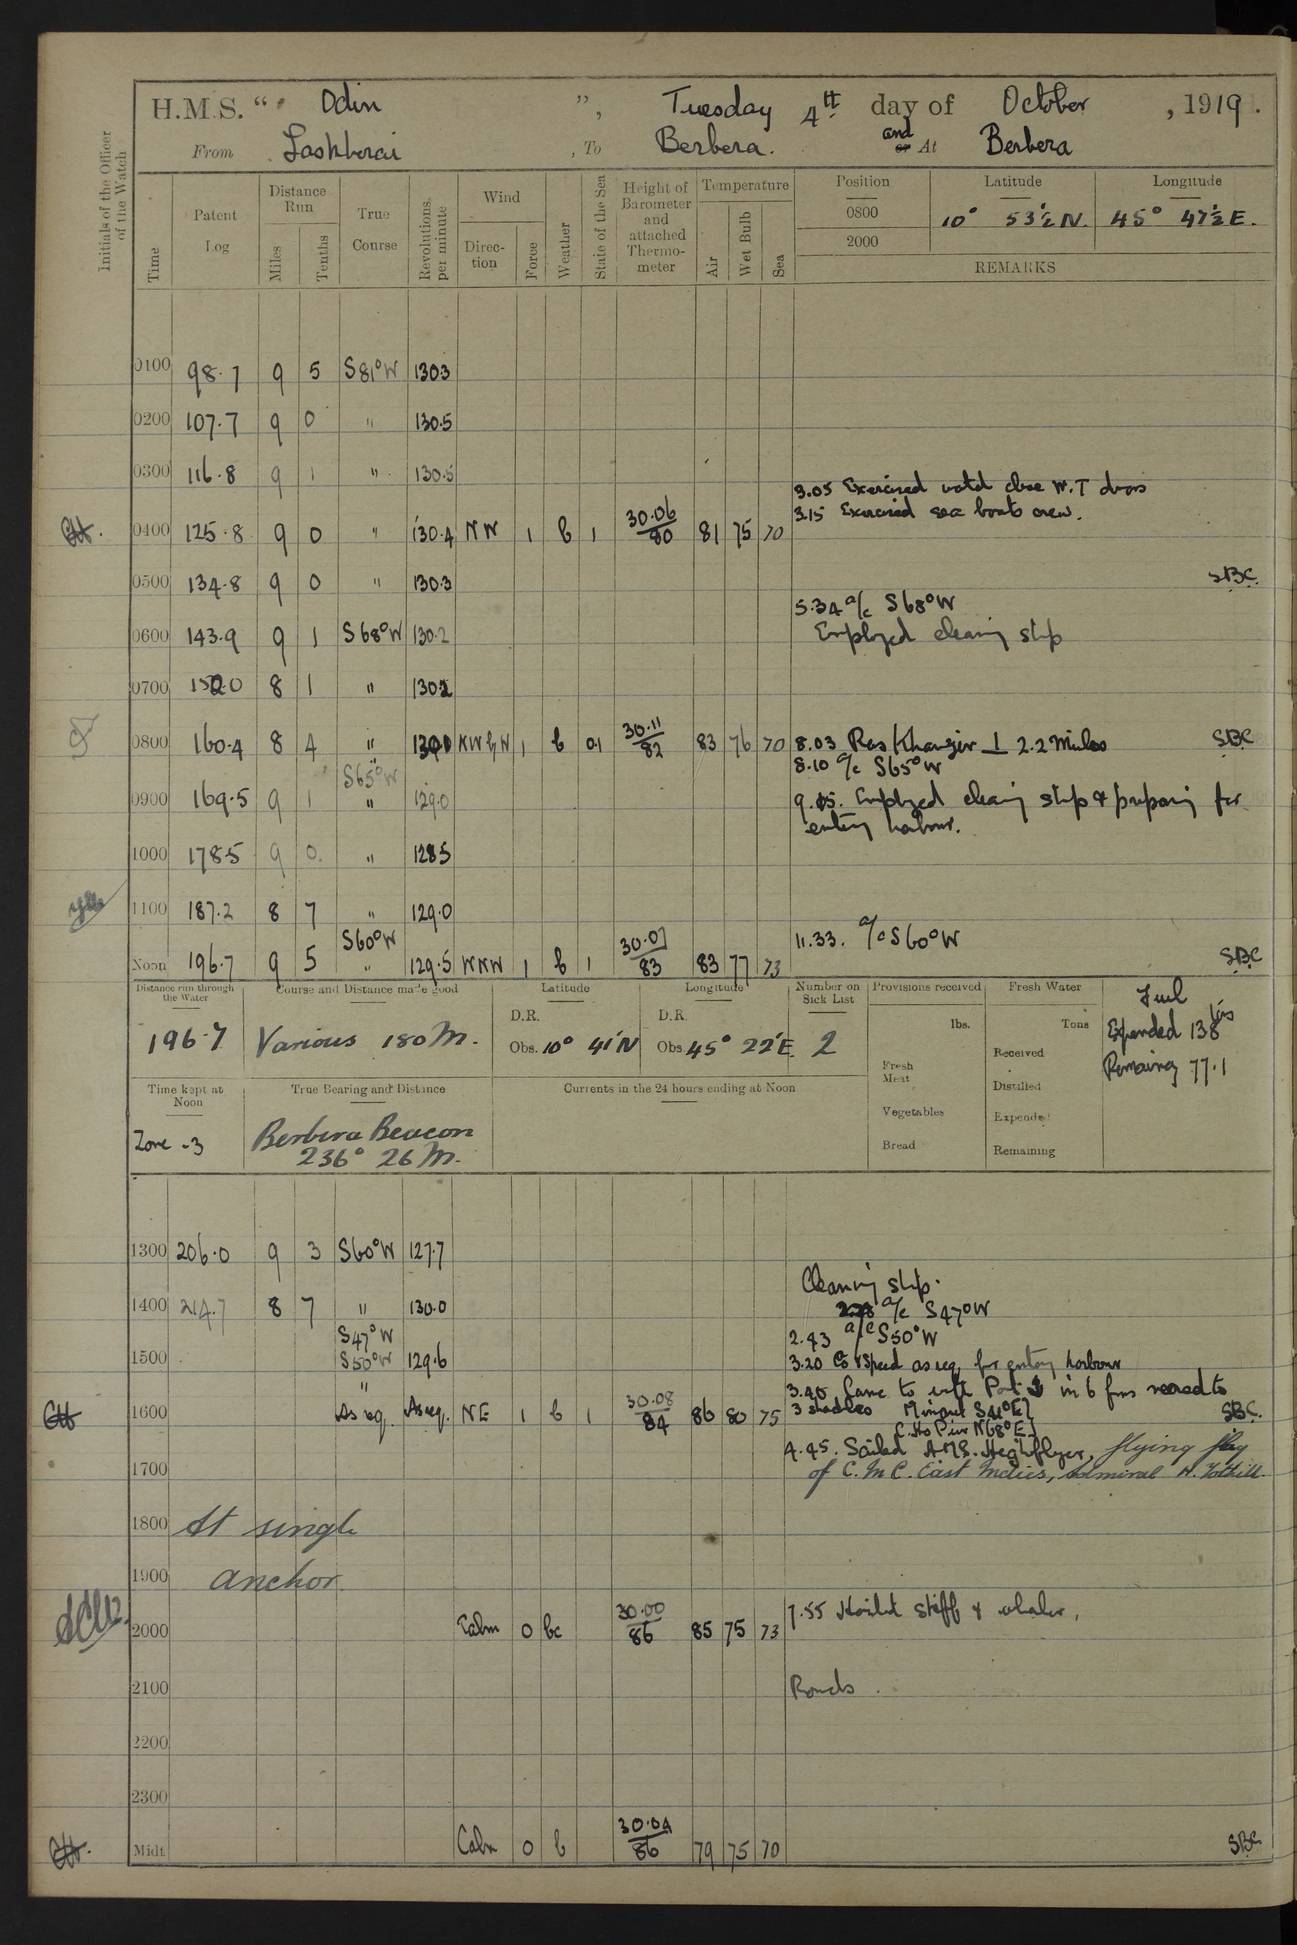 H.M.S. " Odin ", Tuesday 4th day of October, 1919.
From Laskherai, To Berbera. and or At Berbera
Initials of the Officer of the Watch
Time Patent Log Distance Run Miles Tenths True Course Revolutions per minute Wind Direction Force Weather State of the Sea Height of Barometer and attached Thermometer Temperature Air Wet Bulb Sea
Position Latitude Longitude
0800 10° 53½' N. 45° 47½' E.
2000
REMARKS
0100 98.7 9 5 S81°W 130.3
0200 107.7 9 0 " 130.5
0300 116.8 9 1 " 130.5
3.05 Exercised watch close W.T doors
3.15 Exercised sea boats crew.
0400 125.8 9 0 " 130.4 NW 1 b 1 30.06 80 81 75 70
0500 134.8 9 0 " 130.3 SBC
5.34 a/c S68°W
0600 143.9 9 1 S68°W 130.2 Employed cleaning ship
0700 152.0 8 1 " 130.2
0800 160.4 8 4 " 130.1 NW by W 1 b 0.1 30.11 82 83 76 70 8.03 Ras Khanzir ⊥ 2.2 Miles SBC
8.10 a/c S65°W
S65°W
0900 169.5 9 1 " 129.0 9.15. Employed cleaning ship & preparing for
entering harbour.
1000 178.5 9 0 " 128.5
1100 187.2 8 7 " 129.0
S60°W 11.33. a/c S60°W
Noon 196.7 9 5 " 129.5 WNW 1 b 1 30.07 83 83 77 73 SBC
Distance run through the Water Course and Distance made good Latitude Longitude Number on Sick List Provisions received Fresh Water Fuel
196.7 Various 180 M. D.R. D.R. 2 lbs. Tons Expended 13.8 tons
Obs. 10° 41' N Obs. 45° 22' E. Fresh Meat Received Remaining 77.1
Time kept at Noon True Bearing and Distance Currents in the 24 hours ending at Noon Distilled
Vegetables Expended
Zone -3 Berbera Beacon Bread Remaining
236° 26 M.
1300 206.0 9 3 S60°W 127.7
Cleaning ship.
1400 214.7 8 7 " 130.0 2.28 a/c S47°W
S47°W 2.43 a/c S50°W
1500 S50°W 129.6 3.20 Co & Speed as req for entering harbour
" 3.40 Came to with Port in 6 fms veered to
1600 As req. As req. NE 1 b 1 30.08 84 86 80 75 3 shackles Minaret S41°E SBC.
C. Ho Pier N68°E
4.45. Sailed H.M.S. Highflyer, flying flag
1700 of C. in C. East Indies, Admiral H. Tothill.
1800 At single
1900 anchor.
7.55 Hoisted skiff & whaler.
2000 Calm 0 bc 30.00 86 85 75 73
2100 Rounds.
2200
2300
Midt. Calm 0 b 30.04 86 79 75 70 SBC